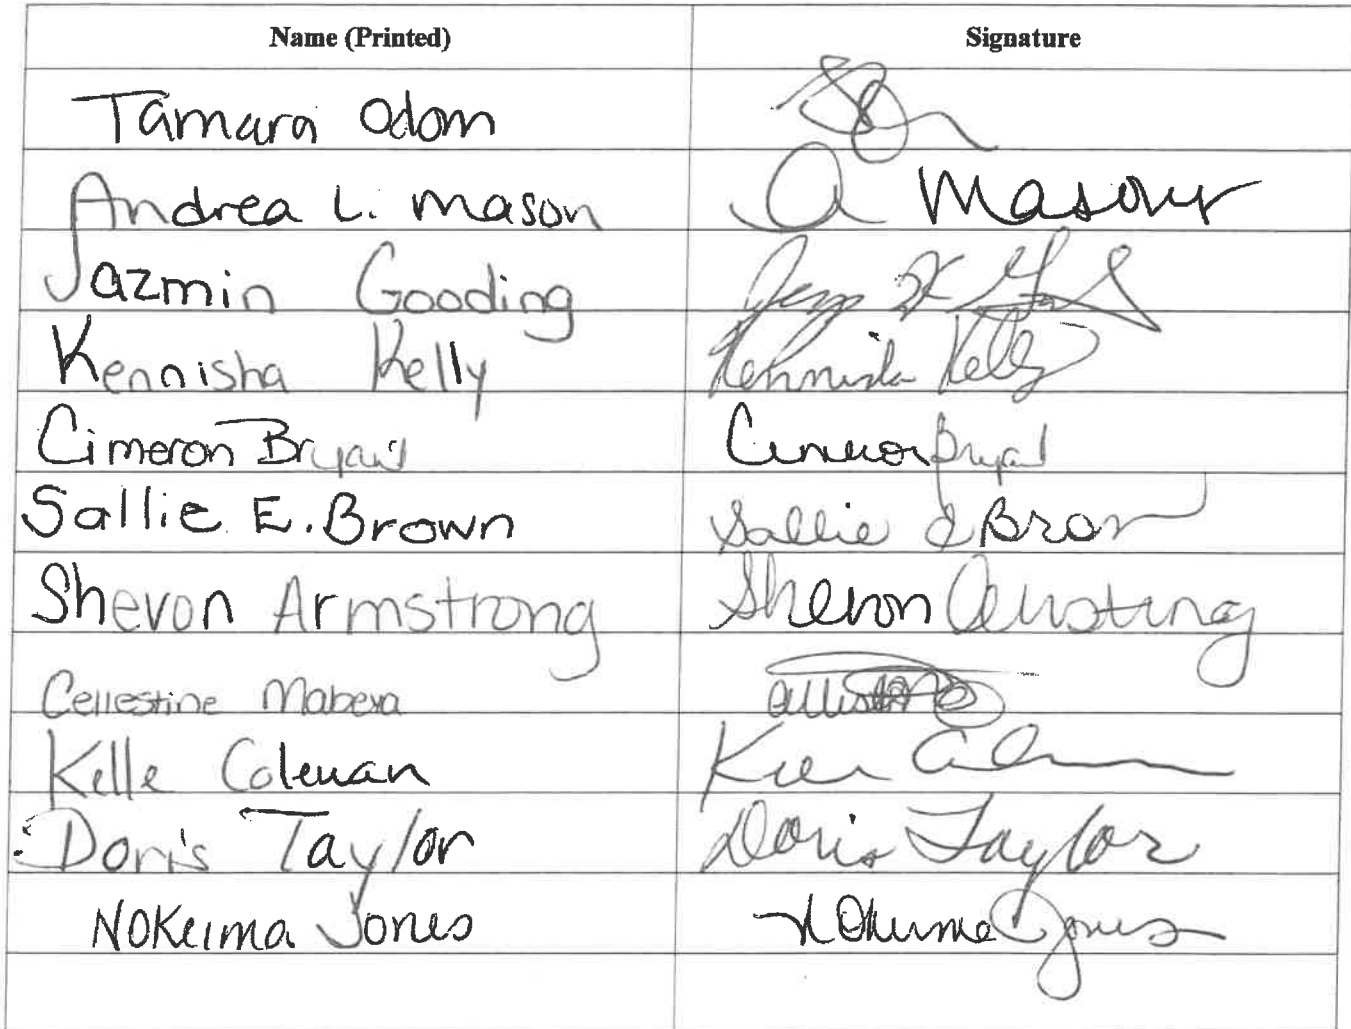 Name (Printed) Signature
Tamara Odom
Andrea L. Mason A Mason
Jazmin Gooding
Kennisha Kelly Kennisha Kelly
Cimeron Bryant Cimeron Bryant
Sallie E. Brown Sallie E Brown
Shevon Armstrong Shevon Armstrong
Cellestine Mabeya
Kelle Coleman
Doris Taylor Doris Taylor
NOKeima Jones NOKeima Jones